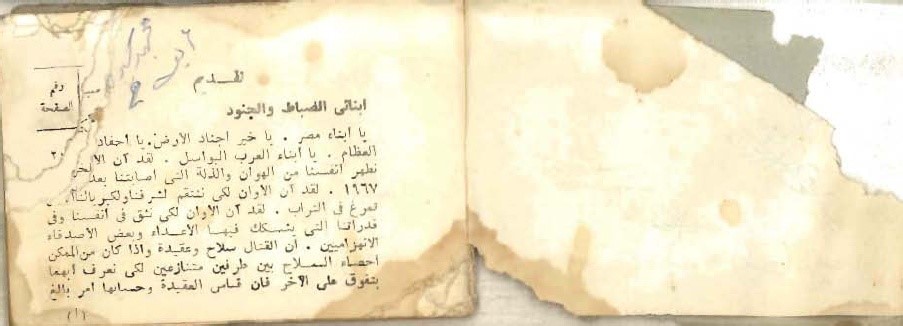 تقديم
رقم
الصفحة
ابنائى الضباط والجنود
يا ابناء مصر . يا خير اجناد الارض . يا احفاد
العظام . يا ابناء العرب البواسل . لقد آن الا
نطهر انفسنا من الهوان والذلة التى اصابتنا بعد
١٩٦٧ . لقد آن الاوان لكى ننتقم لشرفنا ولكبريائنا
تمرغ فى التراب . لقد آن الاوان لكى نثق فى أنفسنا وفى
قدراتنا التى يشكك فيها الأعداء وبعض الاصدقاء
الانهزاميين . ان القتال سلاح وعقيدة واذا كان من الممكن
احصاء السلاح بين طرفين متنازعين لكى نعرف ايهما
يتفوق على الآخر فان قياس العقيدة وحسابها امر بالغ
(١)